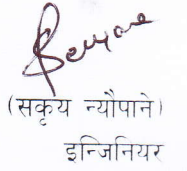 (सकृय न्यौपाने)
इन्जिनियर